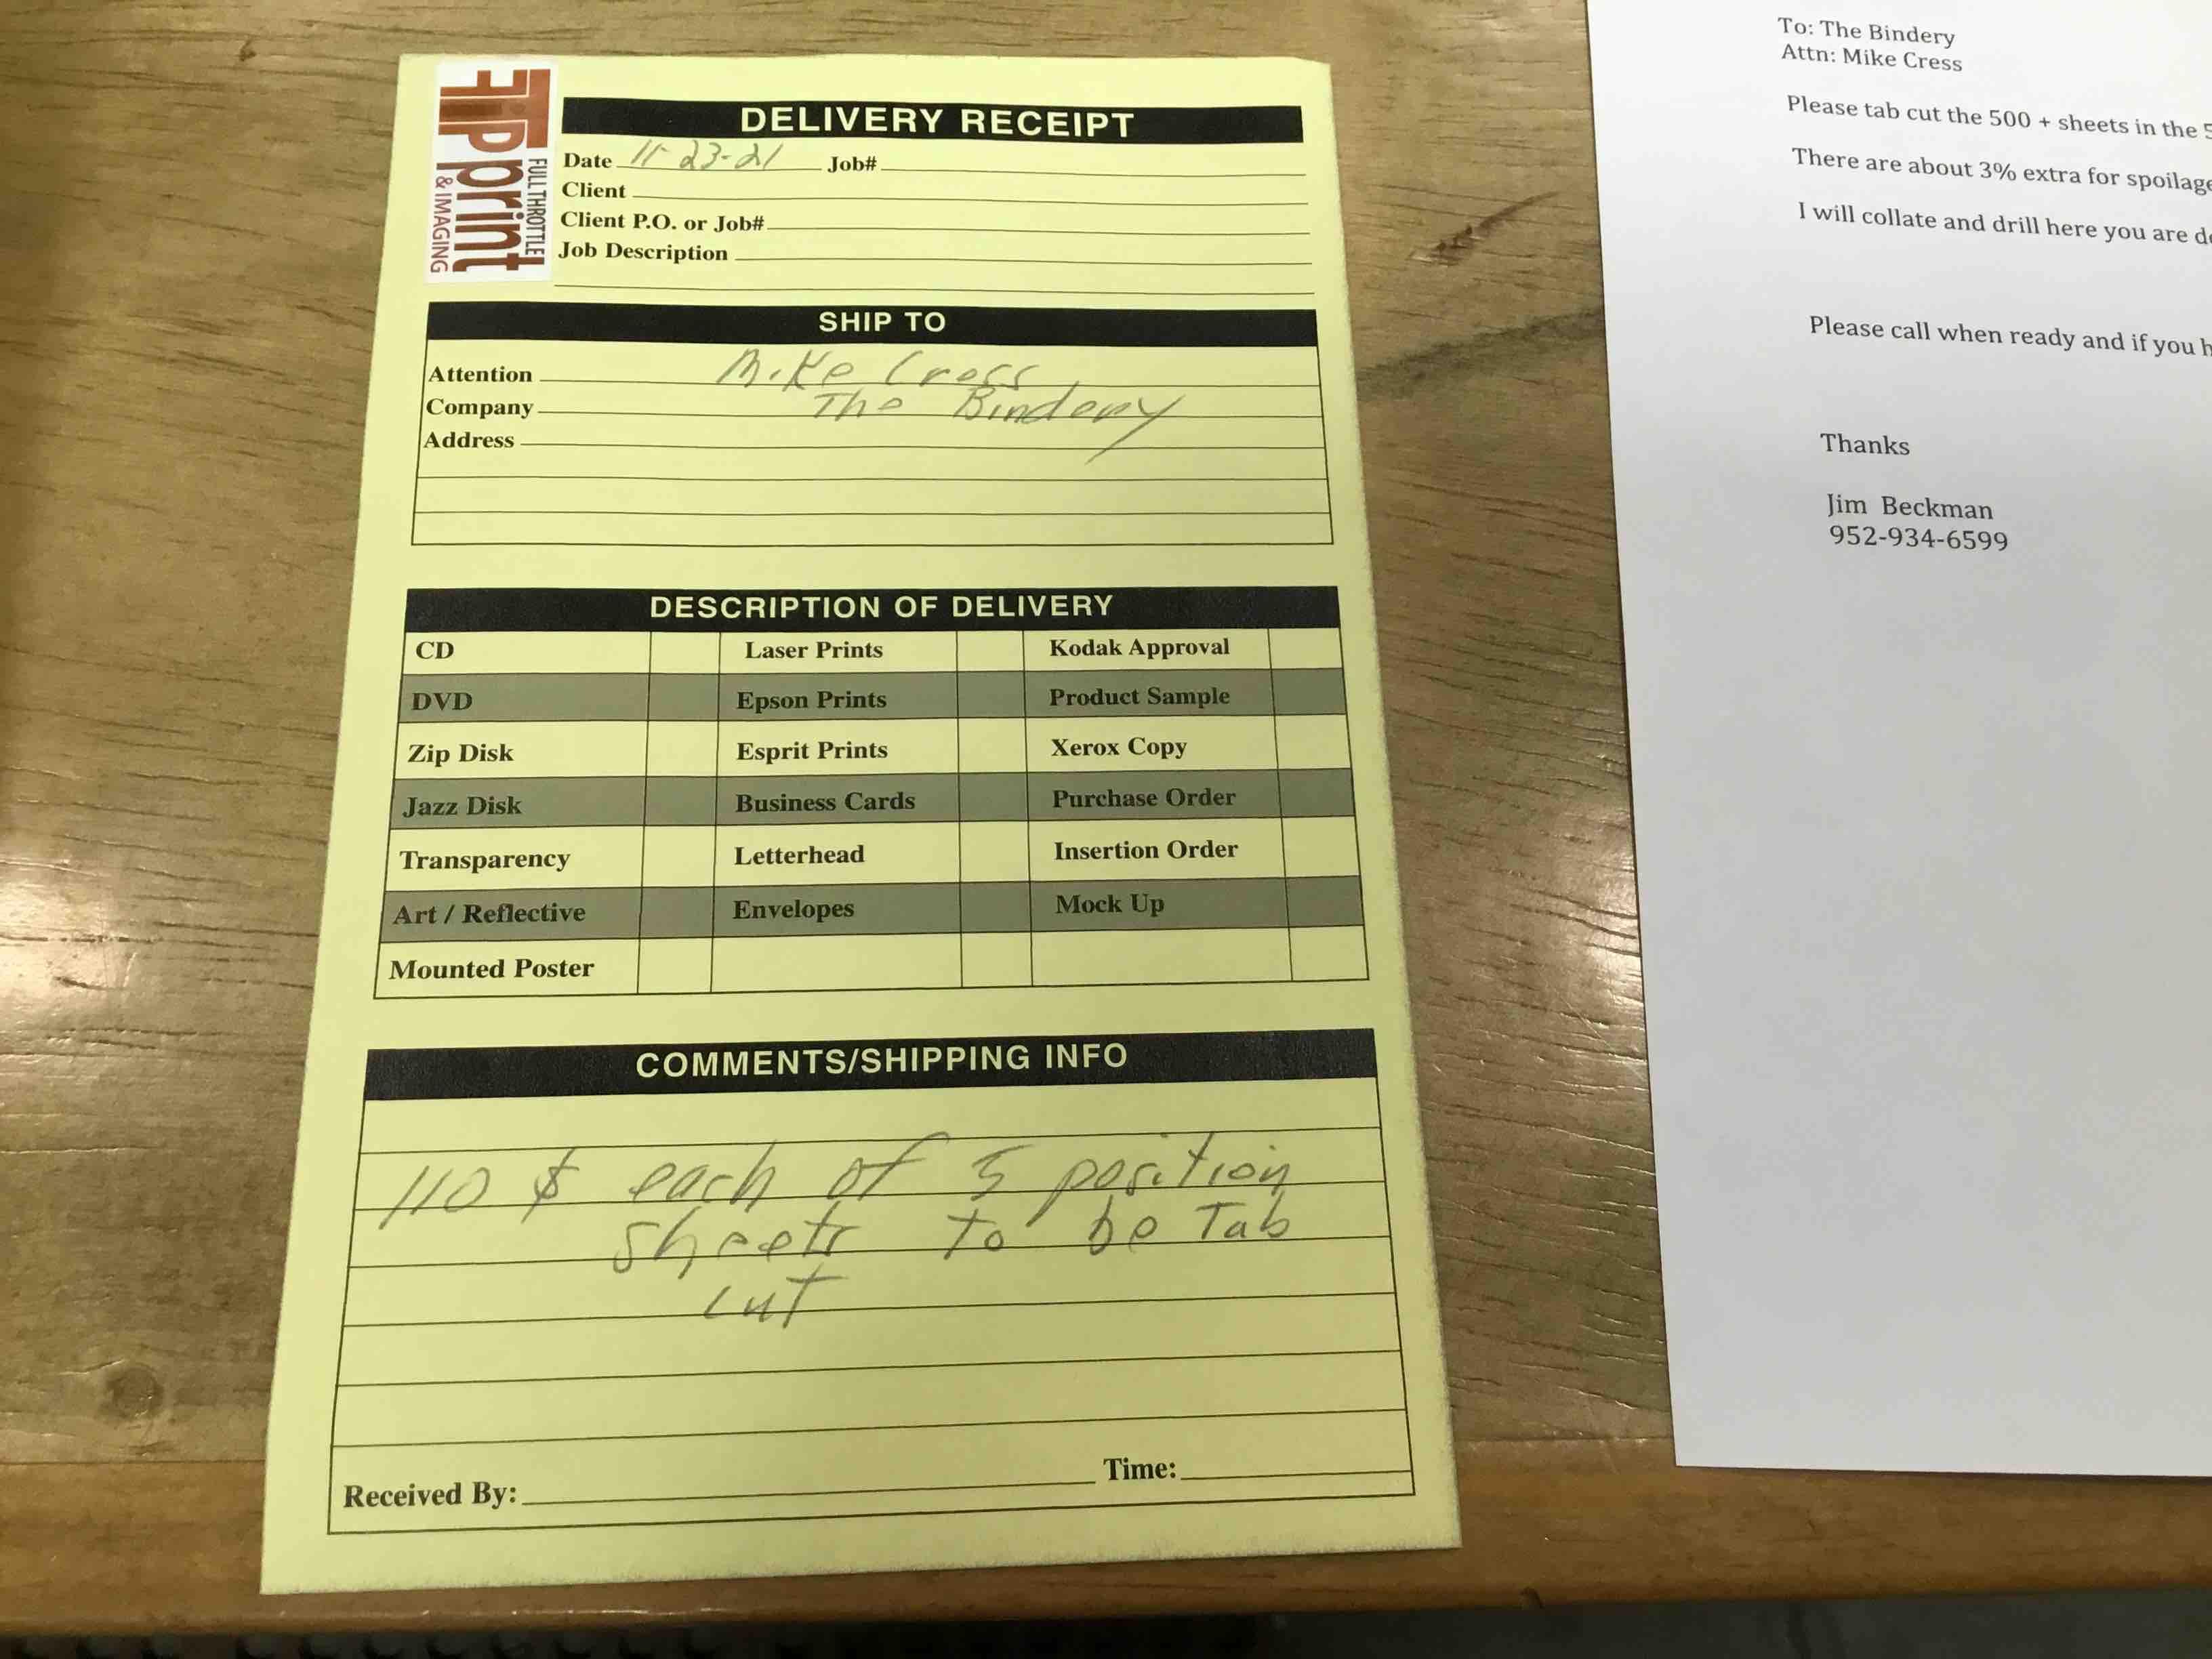 FTprint
FULL THROTTLE
& IMAGING
DELIVERY RECEIPT
Date 11-23-21 Job#
Client
Client P.O. or Job#
Job Description
SHIP TO
Attention Mike Cress
Company The Bindery
Address
DESCRIPTION OF DELIVERY
CD Laser Prints Kodak Approval
DVD Epson Prints Product Sample
Zip Disk Esprit Prints Xerox Copy
Jazz Disk Business Cards Purchase Order
Transparency Letterhead Insertion Order
Art / Reflective Envelopes Mock Up
Mounted Poster
COMMENTS/SHIPPING INFO
110 $ each of 5 position
sheets to be Tab
cut
Received By: Time:
To: The Bindery
Attn: Mike Cress
Please tab cut the 500 + sheets in the 5
There are about 3% extra for spoilage
I will collate and drill here you are
Please call when ready and if you
Thanks
Jim Beckman
952-934-6599